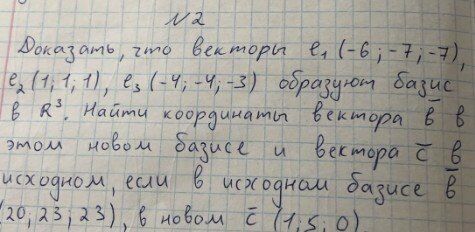 №2
Доказать, что векторы e₁ (-6; -7; -7),
e₂ (1; 1; 1), e₃ (-4; -4; -3) образуют базис
в R³. Найти координаты вектора b̄ в
этом новом базисе и вектора c̄ в
исходном, если в исходном базисе b̄
(20; 23; 23), в новом c̄ (1; 5; 0).